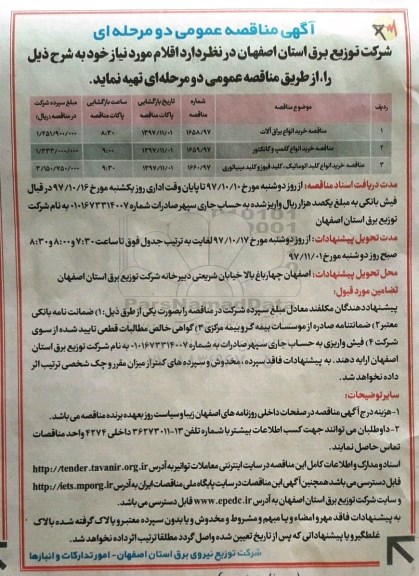 آگهی مناقصه عمومی دو مرحله ای
شرکت توزیع برق استان اصفهان در نظر دارد اقلام مورد نیاز خود به شرح ذیل
را، از طریق مناقصه عمومی دو مرحله‌ای تهیه نماید.
ردیف موضوع مناقصه شماره مناقصه تاریخ بازگشایی پاکات مناقصه ساعت بازگشایی پاکات مناقصه مبلغ سپرده شرکت در مناقصه (ریال)
۱ مناقصه خرید انواع یراق آلات ۱۶۵۸/۹۷ ۱۳۹۷/۱۱/۰۱ ۸:۳۰ ۱/۴۵۱/۹۰۰/۰۰۰
۲ مناقصه خرید انواع کلمپ و کانکتور ۱۶۵۹/۹۷ ۱۳۹۷/۱۱/۰۱ ۹:۰۰ ۱/۳۳۳/۰۰۰/۰۰۰
۳ مناقصه خرید انواع کلید اتوماتیک، کلید فیوز و کلید مینیاتوری ۱۶۶۰/۹۷ ۱۳۹۷/۱۱/۰۱ ۹:۳۰ ۳/۱۵۰/۷۵۰/۰۰۰
مدت دریافت اسناد مناقصه: از روز دوشنبه مورخ ۹۷/۱۰/۱۰ تا پایان وقت اداری روز یکشنبه مورخ ۹۷/۱۰/۱۶ در قبال
فیش بانکی به مبلغ یکصد هزار ریال واریز شده به حساب جاری سپهر صادرات شماره ۰۱۰۱۶۷۳۳۱۴۰۰۷ به نام شرکت
توزیع برق استان اصفهان
مدت تحویل پیشنهادات: از روز دوشنبه مورخ ۹۷/۱۰/۱۷ لغایت به ترتیب جدول فوق تا ساعت ۷:۳۰ و ۸:۰۰ و ۸:۳۰
صبح روز دوشنبه مورخ ۹۷/۱۱/۰۱
محل تحویل پیشنهادات: اصفهان چهارباغ بالا خیابان شریعتی دبیرخانه شرکت توزیع برق استان اصفهان
تضامین مورد قبول:
پیشنهاد دهندگان مکلفند معادل مبلغ سپرده شرکت در مناقصه را بصورت یکی از طرق ذیل: ۱) ضمانت نامه بانکی
معتبر ۲) ضمانتنامه صادره از موسسات بیمه گر و بیمه مرکزی ۳) گواهی خالص مطالبات قطعی تایید شده از سوی
شرکت ۴) فیش واریزی به حساب جاری سپهر صادرات به شماره ۰۱۰۱۶۷۳۳۱۴۰۰۷ به نام شرکت توزیع برق استان
اصفهان ارایه دهند. به پیشنهادات فاقد سپرده، مخدوش و سپرده های کمتر از میزان مقرر و چک شخصی ترتیب اثر
داده نخواهد شد.
سایر توضیحات:
۱- هزینه درج آگهی مناقصه در صفحات داخلی روزنامه های اصفهان زیبا و سیاست روز بعهده برنده مناقصه می باشد.
۲- داوطلبان می توانند جهت کسب اطلاعات بیشتر با شماره تلفن ۱۳-۳۶۲۷۳۰۱۱ داخلی ۴۲۷۴ واحد مناقصات
تماس حاصل نمایند.
اسناد و مدارک و اطلاعات کامل این مناقصه در سایت اینترنتی معاملات توانیر به آدرس http://tender.tavanir.org.ir
قابل دسترسی می باشد همچنین آگهی این مناقصات در سایت پایگاه ملی مناقصات ایران به آدرس http://iets.mporg.ir
و سایت شرکت توزیع برق استان اصفهان به آدرس www.epedc.ir قابل دسترسی می باشد.
به پیشنهادات فاقد مهر و امضاء و یا مبهم و مشروط و مخدوش و یا بدون سپرده معتبر و یا لاک گرفته شده یا لاک
غلط‌گیر و یا پیشنهاداتی که پس از تاریخ تعیین شده واصل گردد مطلقا ترتیب اثر داده نخواهد شد.
شرکت توزیع نیروی برق استان اصفهان- امور تدارکات و انبارها
ParsNamadData